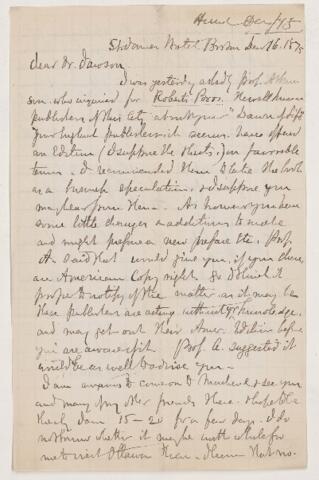 Dec 16. 1875
dear Dr. Dawson
I was yesterday asked by Prof.
who inquired for Roberts Bros.
publishers of this city about your "Dawn of Life"
your England publishers it seems have offered
an Edition (I suppose the sheets,) on favorable
terms. I recommended them to take the book
as a business speculation, & I suppose you
may hear from them. As however you have
some little changes & additions to make
and might prepare a new preface &c., Prof.
A. said that would give you, if you chose
an American Copyright & I think it
proper to notify you of the matter as it may be
these publishers are acting without yr knowledge.
and may get out their Amer. Edition before
you are aware of it. Prof. A. suggested it
would be as well to advise you—
I am anxious to come on to Montreal & see you
and many of my other friends there. I hope to be
there Jan 15-20 for a few days. I do
not know whether it may be worth while for
me to visit Ottawa then.